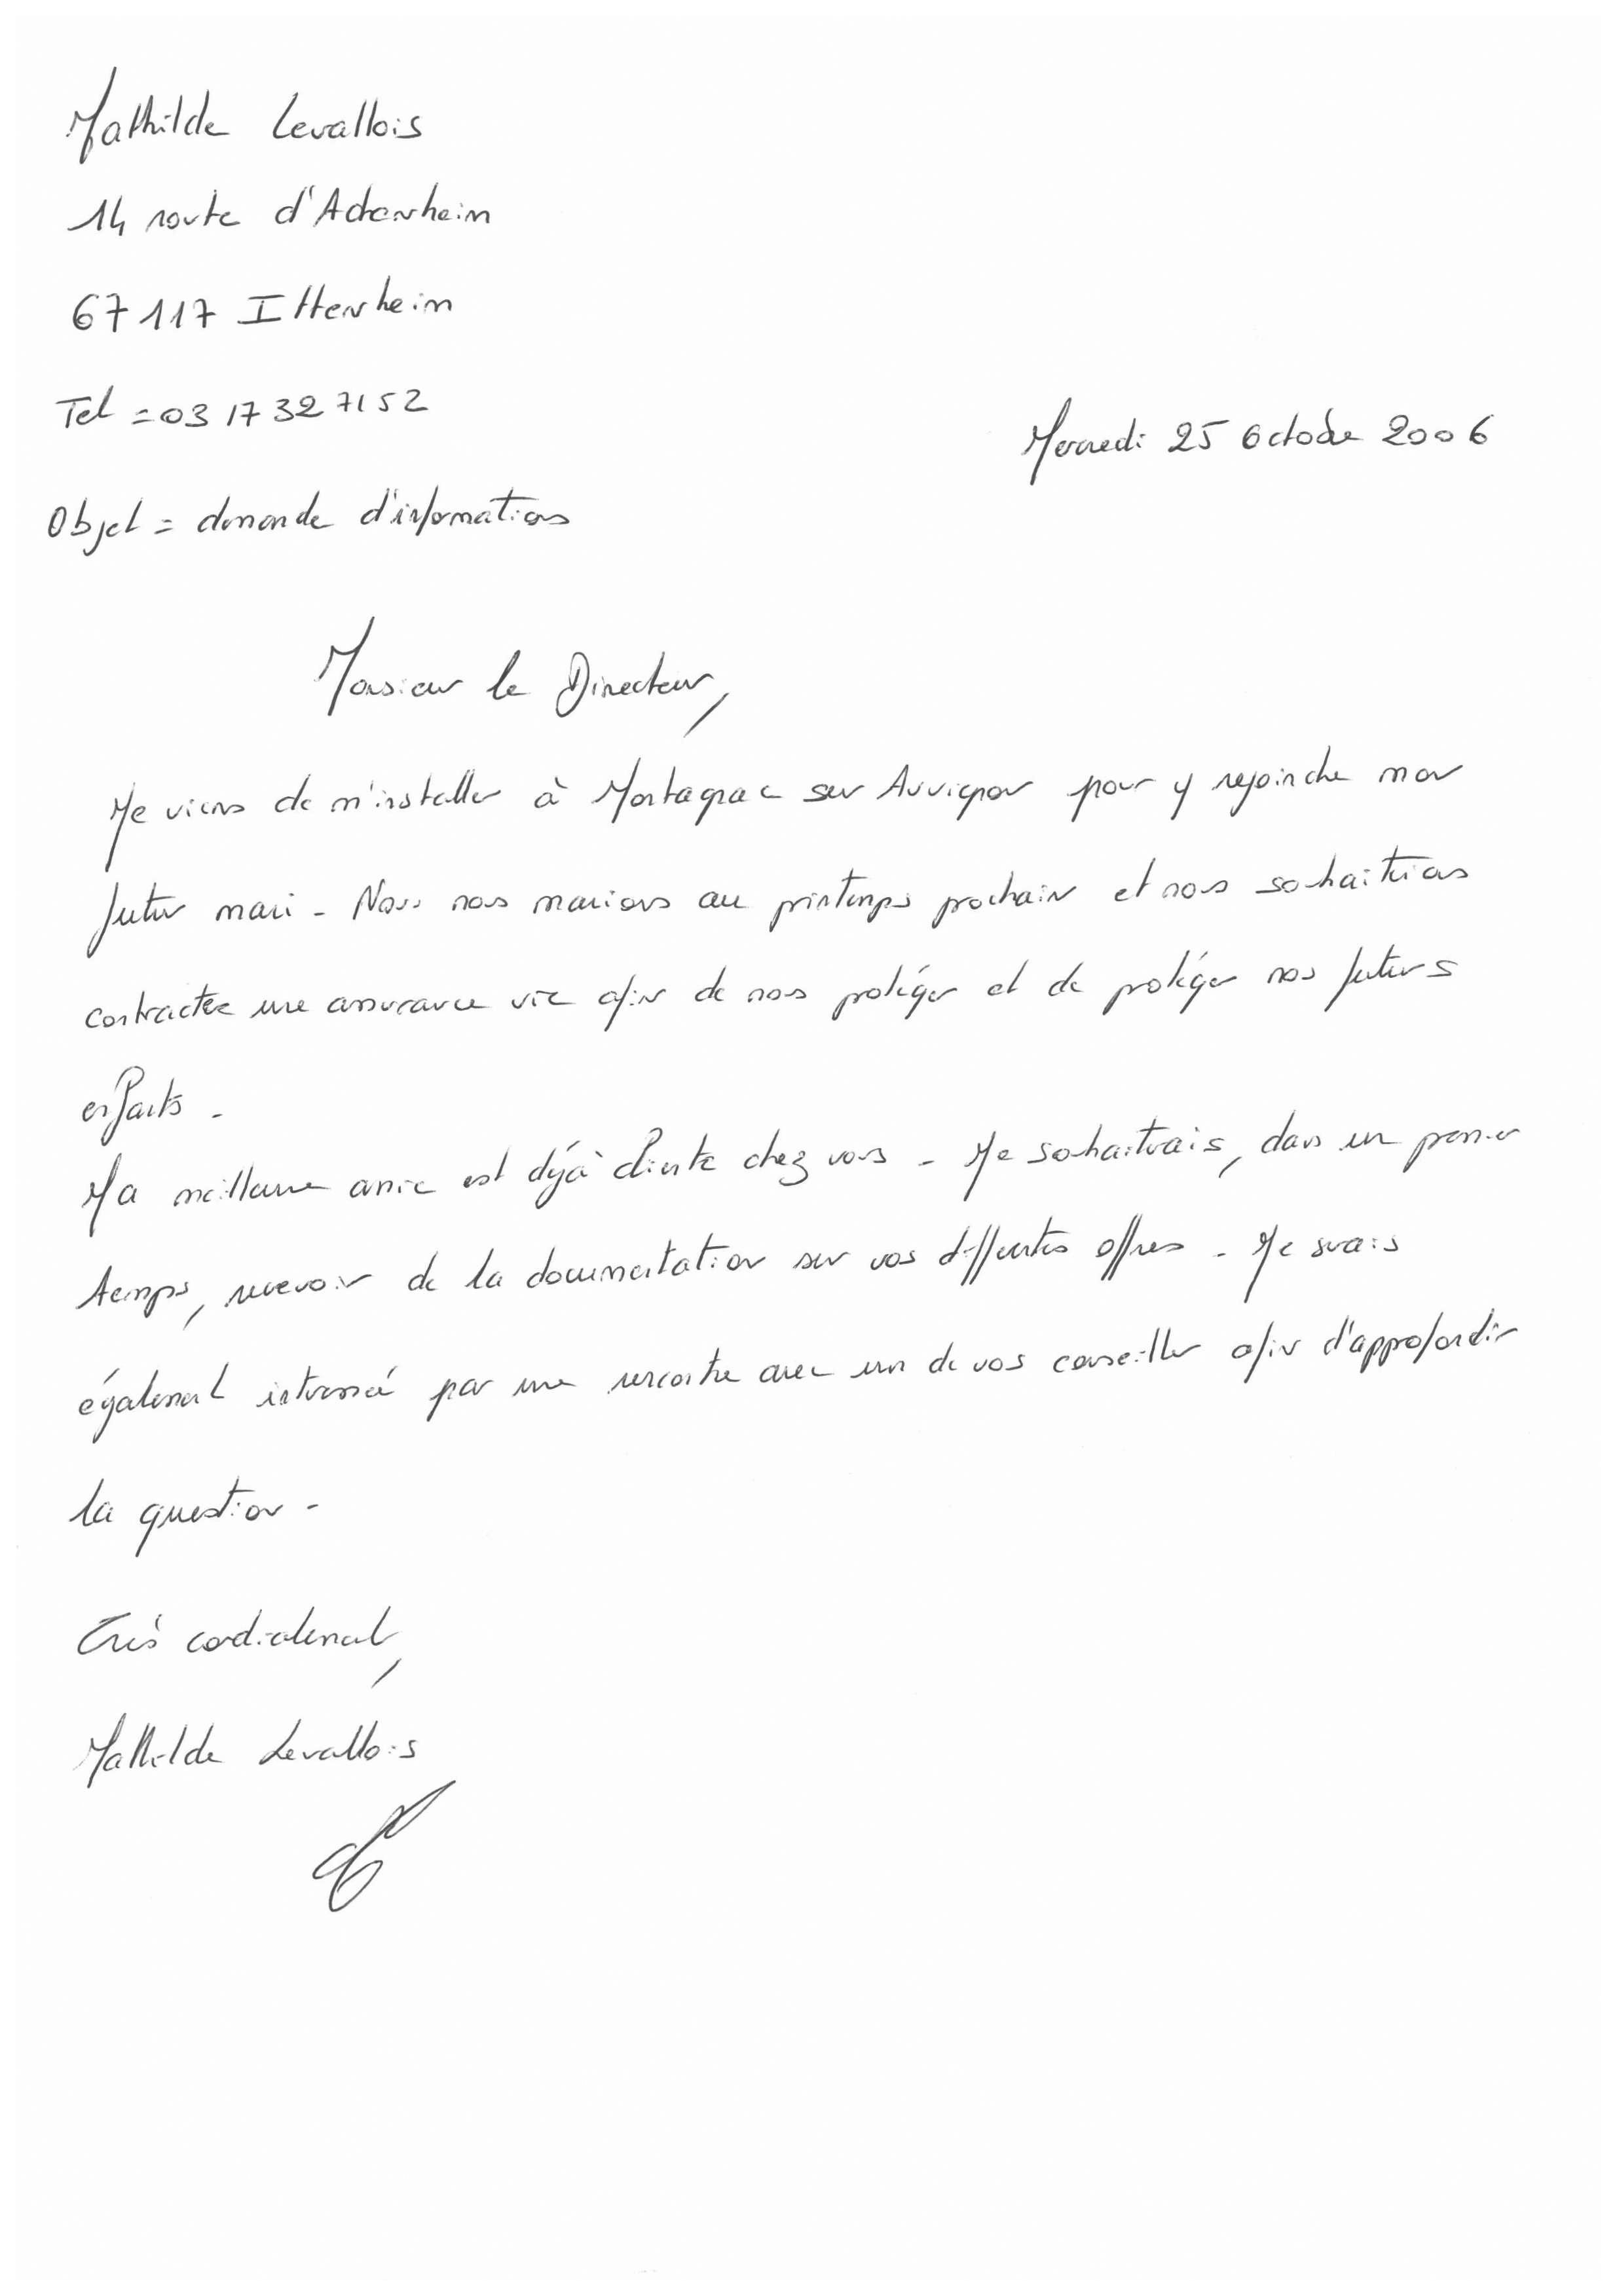 Mathilde Levallois
14 route d'Achenheim
67117 Ittenheim
Tel = 03 17 32 71 52
Mercredi 25 Octobre 2006
Objet = demande d'informations
Monsieur le Directeur,
Je viens de m'installer à Montagnac sur Auvignon pour y rejoindre mon
futur mari. Nous nous marions au printemps prochain et nous souhaiterions
contracter une assurance vie afin de nous protéger et de protéger nos futurs
enfants.
Ma meilleure amie est déjà cliente chez vous. Je souhaiterais, dans un premier
temps, recevoir de la documentation sur vos différentes offres. Je serais
également intéressée par une rencontre avec un de vos conseiller afin d'approfondir
la question.
Très cordialement,
Mathilde Levallois